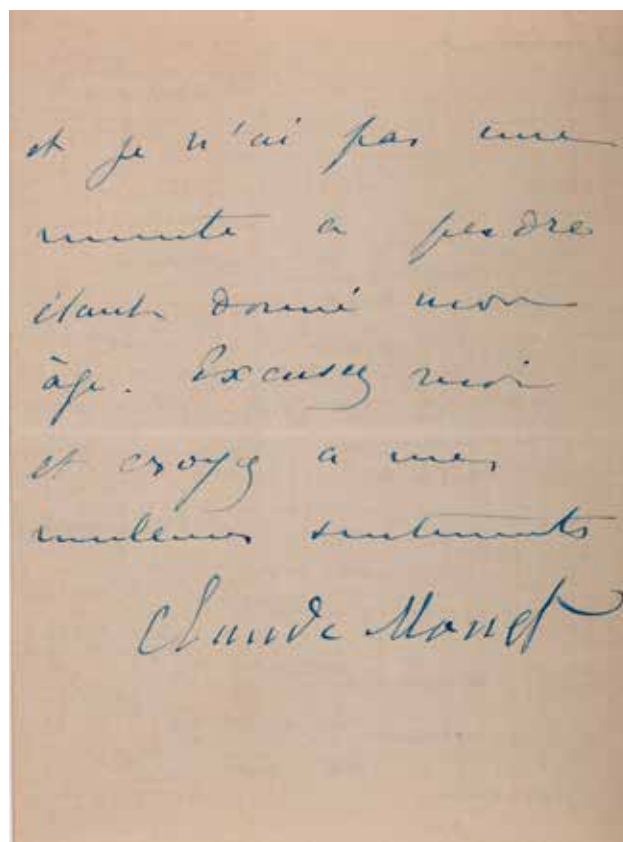 et je n'ai pas une
minute a perdre
étant donné mon
âge. Excusez moi
et croyez a mes
meilleurs sentiments
Claude Monet